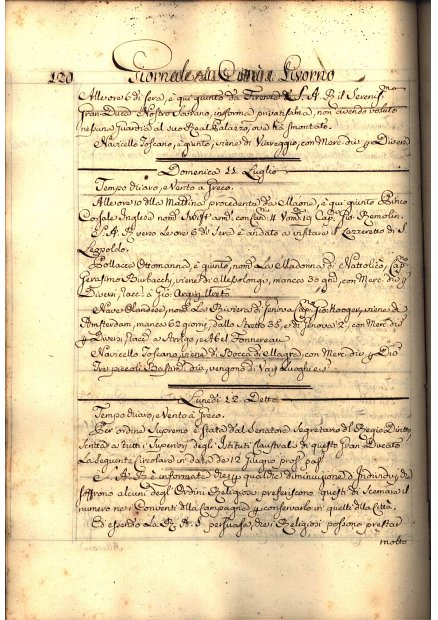 120 Giornale di Livorno
Alle ore 6 di sera, è qui giunto da Firenze S. A. R. il Serenis.mo
Gran Duca Nostro Sovrano, in forma privatissima, non avendo voluto
nessuna Guardia al suo Real Palazzo, ov'è smontato.
Navicello Toscano, è giunto, viene di Viareggio, con Merc. div. p Diversi
Domenica 11. Luglio
Tempo chiaro, e Vento a Greco.
Alle ore 10 della Mattina procedente da Maone, è qui giunto Brico
Corsale Inglese nom.
S. A. R. verso le ore 6 di Sera è andato a visitare il Lazzeretto di S.
Leopoldo.
Pollacca Ottomanna, è giunta, nom. La Madonna di Cap.no
viene di Messolongi, manca 30 gni, con Merc. div. p
Diversi, racc. a Gio.
Nave Olandese, nom. La Riviera di Genova Cap. viene di
Amsterdam, manca 62 giorni, dallo Stretto 35, e di Genova 2, con Merc. div.
p Diversi, racc. a Arrigo, e Abel Fonnereau
Navicello Toscano, viene di Bocca di Magra, con Merc. div. p Div.
Tre piccoli Bastim. div. vengono da Varj Luoghi
Lunedì 12. Detto
Tempo chiaro, e Vento a Greco.
Per ordine Supremo è stata dal Senatore Segretario del Regio Diritto
scritta a tutti i Superiori degli Istituti Claustrali di questo Gran Ducato
la seguente Circolare in data de' 12 Giugno pros. pas.
S. A. R. è informata che p qualche diminuzione d'Individui che
soffrono alcuni degli Ordini Religiosi preferiscono questi di scemare il
numero nei Conventi della Campagna p conservarlo in quelli della Città.
Ed essendo la R. A. S. persuasa, che i Religiosi possono prestar
molto